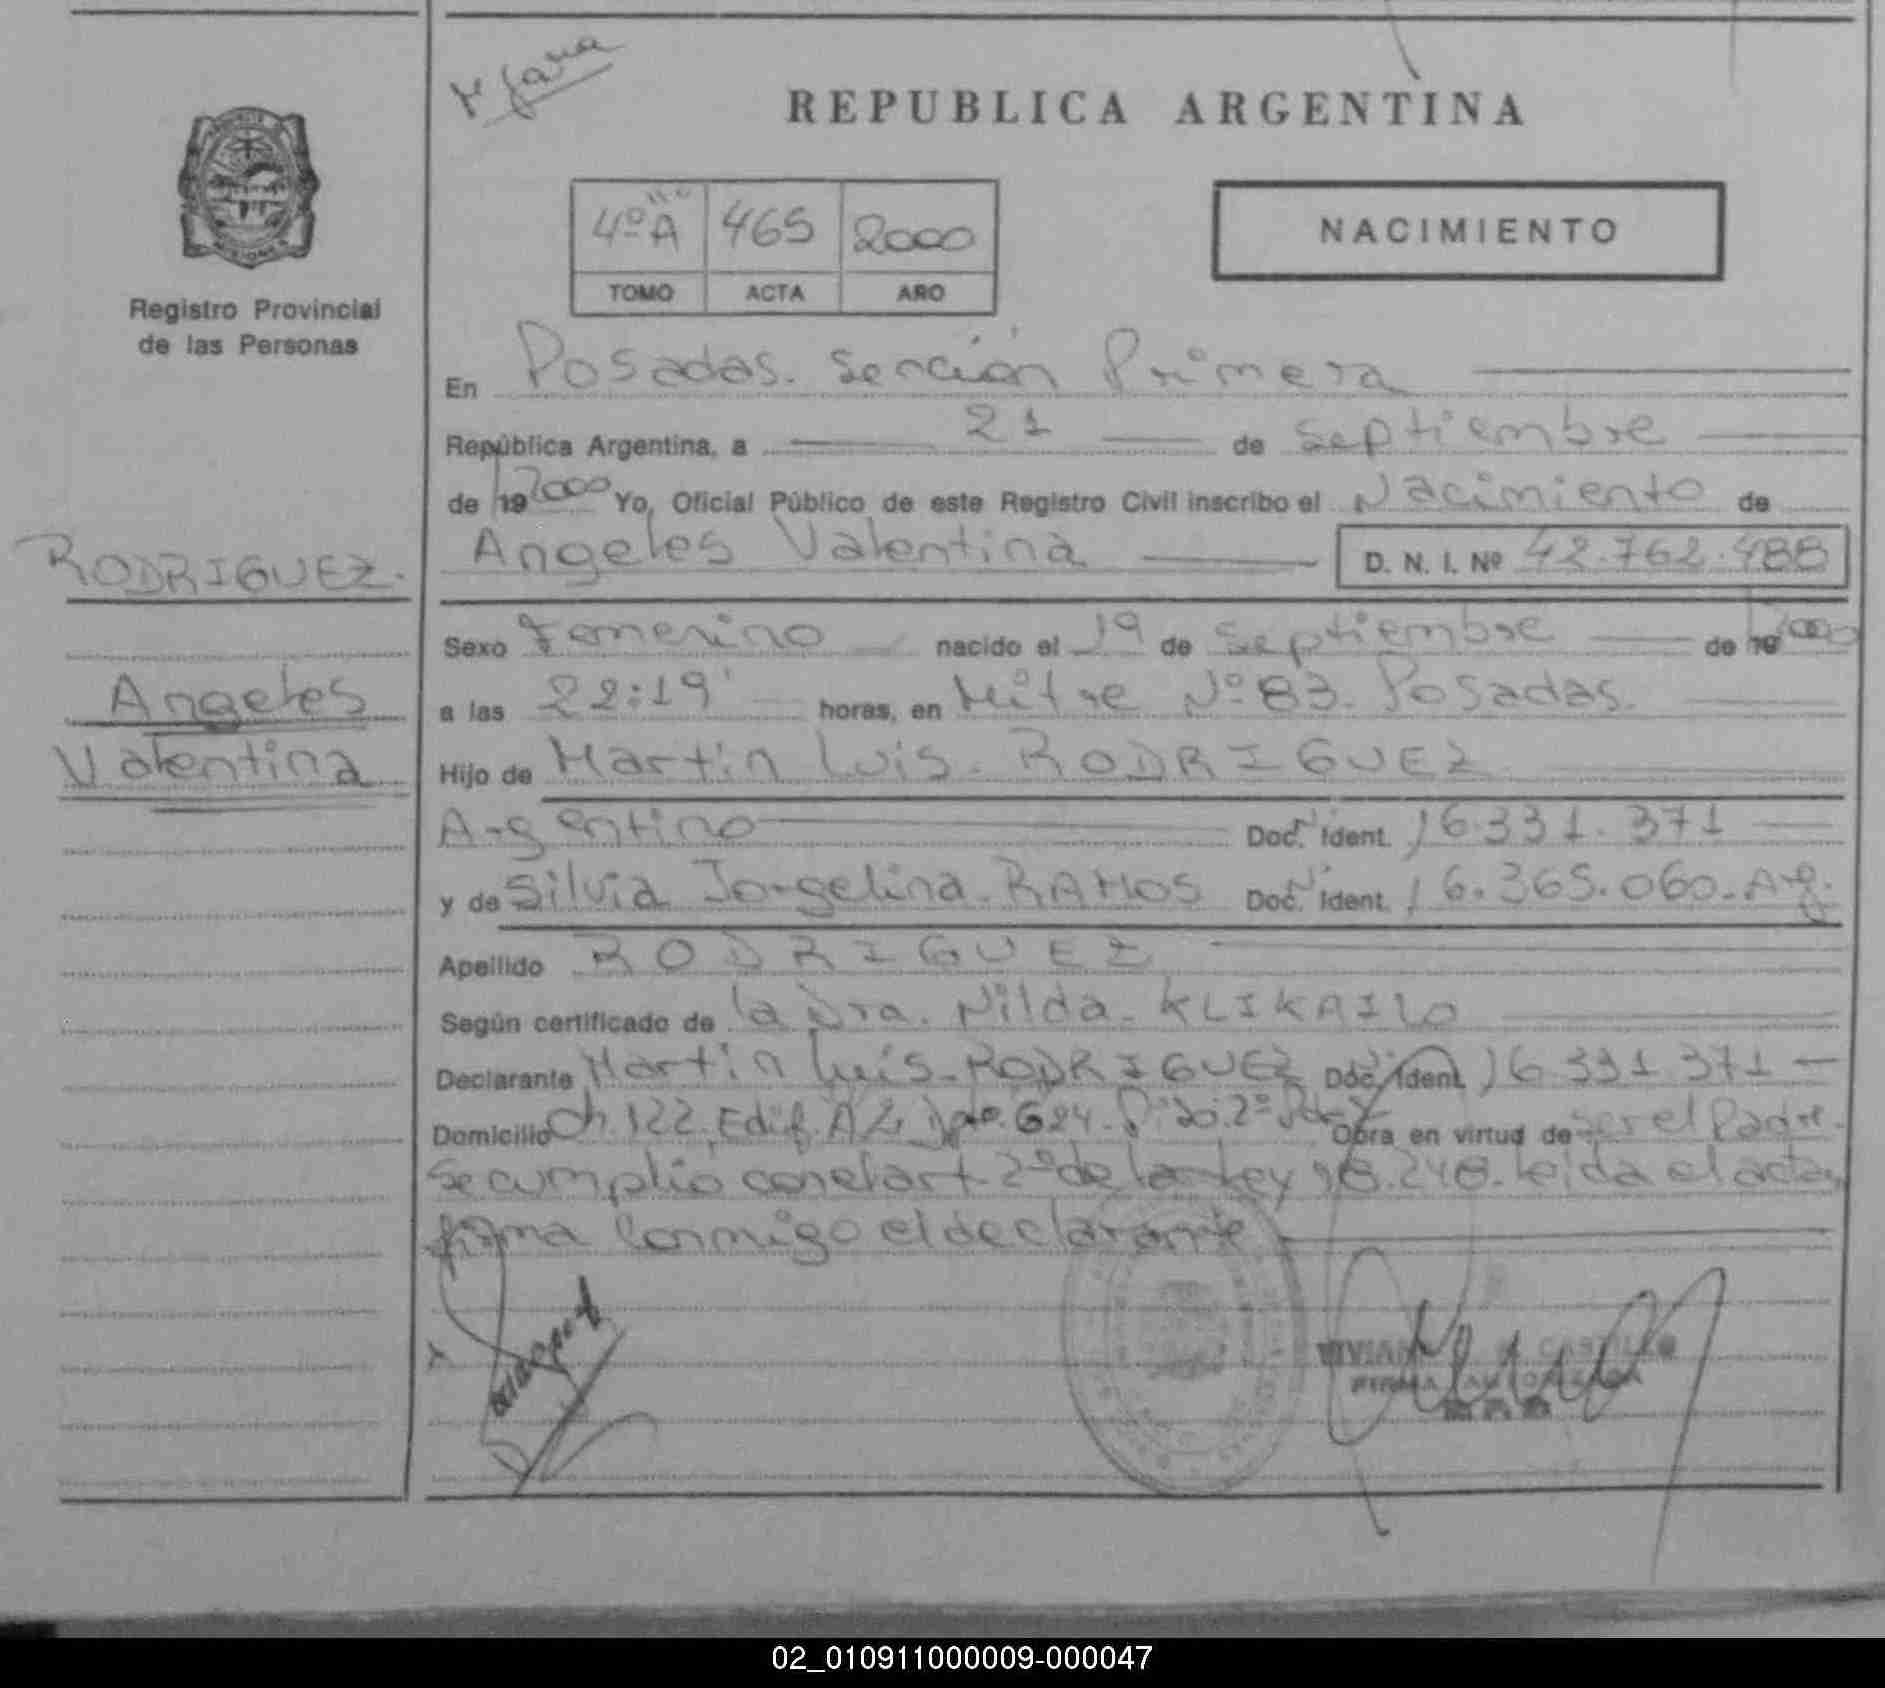 REPUBLICA ARGENTINA
4ºA 465 2000
TOMO ACTA AÑO
NACIMIENTO
Registro Provincial
de las Personas
En Posadas. Sección Primera
República Argentina, a 21 de Septiembre
de 19 2000 Yo, Oficial Público de este Registro Civil inscribo el Nacimiento de
RODRIGUEZ.
Angeles Valentina D. N. I. Nº 42.762.488
Sexo Femenino nacido el 19 de Septiembre de 19 2000
Angeles
a las 22:19' horas, en Mitre Nº 83. Posadas.
Valentina
Hijo de Martin Luis. RODRIGUEZ
Argentino Doc. Ident. 16.331.371
y de Silvia Jorgelina. RAMOS Doc. Ident. 16.365.060. Arg.
Apellido RODRIGUEZ
Según certificado de la Dra. Nilda. KLIKAILO
Declarante Martin Luis. RODRIGUEZ Doc. Ident. 16.331.371
Domicilio Ch. 122. Edif. A 624. 2º Obra en virtud de ser el Padre.
Se cumplió con el art. 2º de la Ley 18.248. leida el acta,
firma conmigo el declarante
CASTILLO
FIRMA AUTORIZADA
02_010911000009-000047